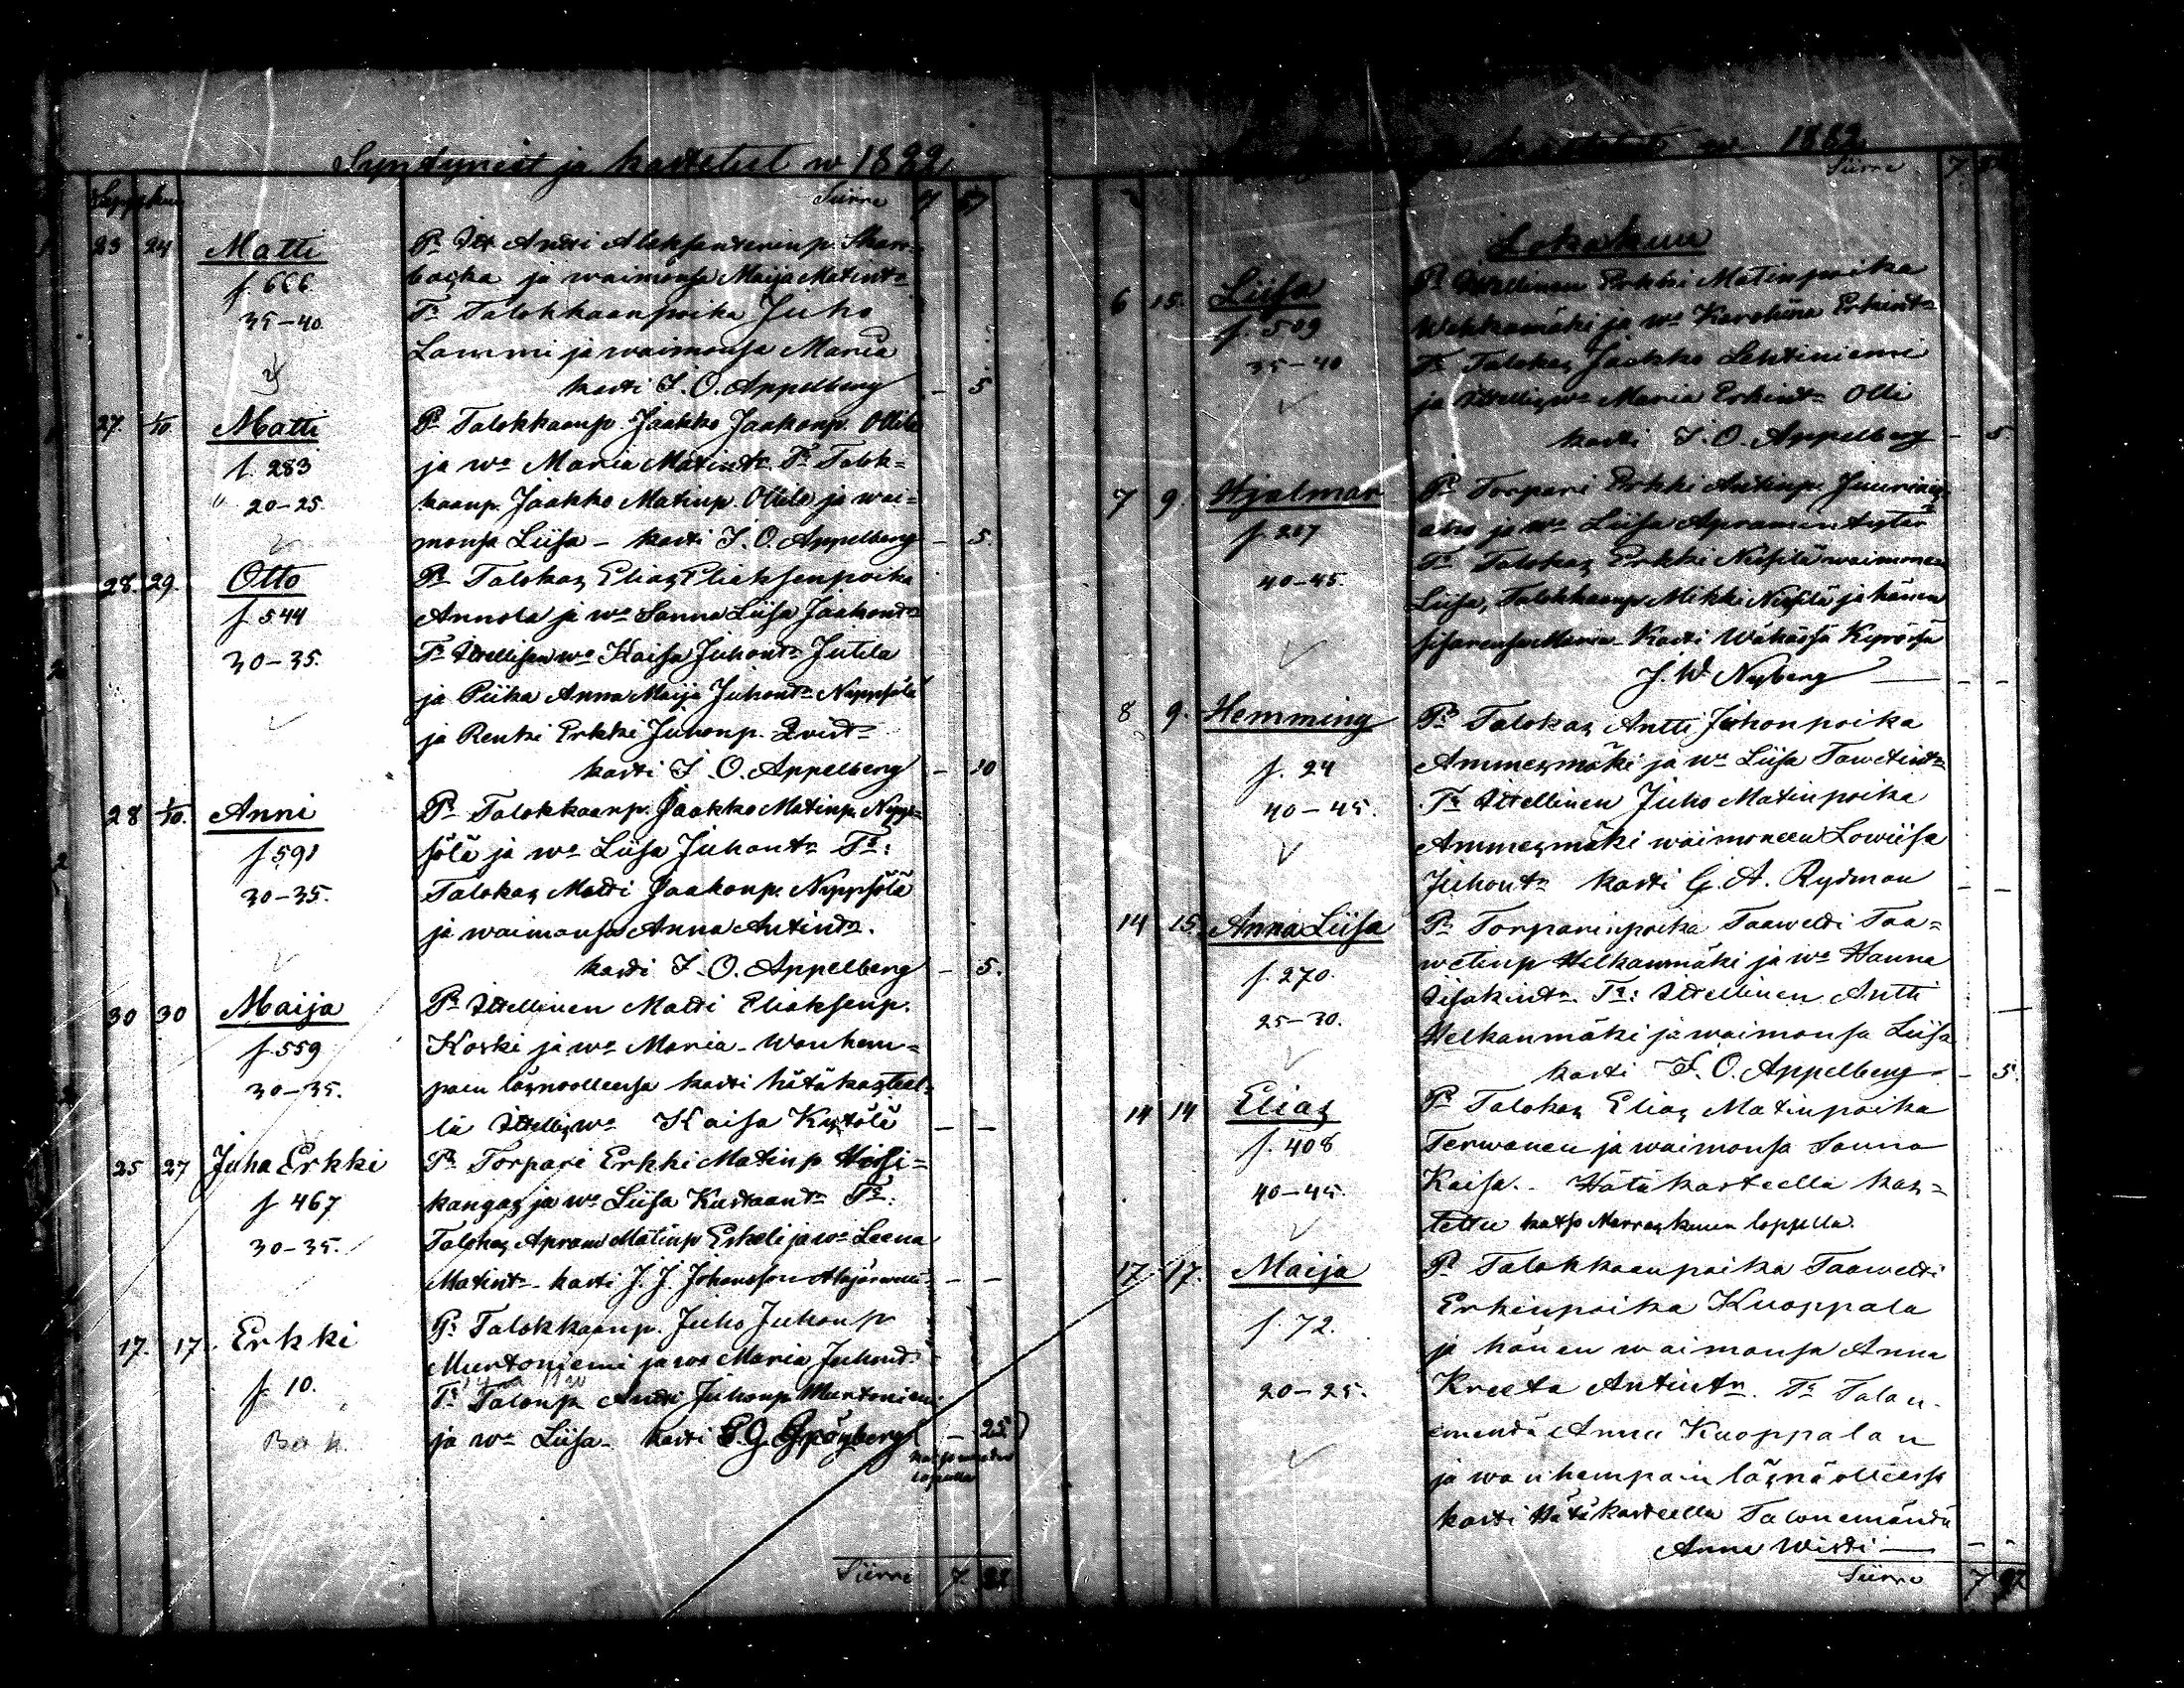 Syntyneet ja kastetut w 1882.
Syyskuu
Siirre 7 57
23 24 Matti Pr. Itll Antti Aleksanterinp. Skarr=
f. 666 backa ja waimonsa Maija Matint:
35-40. Tr. Talokkaanpoika Juho
Lammi ja waimonsa Maria
kasti J. O. Appelberg - 5
27. 1/10 Matti Pr. Talokkaanp. Jaakko Jaakonp. Ollila
f. 283 ja wo Maria Matint: Tr. Talok=
20-25. kaanp. Jaakko Matinp. Ollila ja wai=
monsa Liisa - kasti J. O. Appelberg - 5.
28. 29. Otto Pr. Talokas Elias Eliaksenpoika
f. 544 Annola ja wo Sanna Liisa Jaakont:
30-35. Tr. Itsellisen wo Kaisa Juhont: Jutila
ja Piika Anna Maija Juhont: Nyppölä
ja Renki Erkki Juhonp. Qvist
kasti J. O. Appelberg - 10
28 1/10. Anni Pr. Talokkaanp. Jaakko Matinp. Nyps=
f. 591 sölä ja wo Liisa Juhont: Tr:
30-35. Talokas Matti Jaakonp. Nyppsölä
ja waimonsa Anna Antint:.
kasti J. O. Appelberg - 5.
30 30 Maija Pr. Itsellinen Matti Eliaksenp.
f. 559 Koski ja wo Maria - Wanhem=
30-35. pain läsnäolleessa kasti hätäkasteel=
lä Itsellis wo Kaisa Kytölä - -
25 27 Juha Erkki Pr. Torpari Erkki Matinp. Hirsi=
f. 467 kangas ja wo Liisa Kustaant: Tr:
30-35. Talokas Apram Matinp. Erkeli ja wo Leena
Matint: kasti J. J. Johansson Alajärwell. - -
17. 17. Erkki Pr. Talokkaanp. Juho Juhonp
f. 10. Murtoniemi ja wo Maria Juhont:
Tr. Talonp. Antti Juhonp. Murtoniemi
ja wo Liisa - kasti E. G. Grönberg - 25
lopulla
Siirre 7.
kastetut w. 1882.
Siirre 7.
Lokakuu
6 15. Liisa Pr. Itsellinen Erkki Matinpoika
f. 509 Wehkamäki ja wo Karoliina Erkint:
35-40 Tr. Talokas Jaakko Lehtiniemi
ja Itsellis wo Maria Erkint: Olli
kasti J. O. Appelberg - 5.
7 9. Hjalmar Pr. Torpari Erkki Antinp. Juurinen
f. 217 aho ja wo Liisa Apramintytär
40-45. Tr. Talokas Erkki Nisulä waimonen
Liisa, Talokkaanp. Mikki Nisulä ja hänen
sisarensa Maria - Kasti Wähässä Kyrössä
J. W. Nyberg - -
8 9. Hemming Pr. Talokas Antti Juhonpoika
f. 24 Ammesmäki ja wo Liisa Tawetint:
40-45. Tr. Itsellinen Juho Matinpoika
Ammesmäki waimoneen Lowiisa
Juhont: kasti G. A. Rydman - -
14 15. Anna Liisa Pr. Torparinpoika Taawetti Taa=
f. 270. wetinp Welkanmäki ja wo Hanna
25-30. Iisakint: Tr: Itsellinen Antti
Welkanmäki ja waimonsa Liisa
kasti J. O. Appelberg - 5.
14 14 Elias Pr. Talokas Elias Matinpoika
f. 408 Terwanen ja waimonsa Sanna
40-45. Kaisa. - Hätäkasteella kas=
tettu katso Marraskuun lopulla.
17. 17. Maija Pr. Talokkaanpoika Taawetti
Erkinpoika Kuoppala
f. 72. ja hänen waimonsa Anna
20-25. Kreeta Antint: Tr: Talon
emäntä Anna Kuoppalan
ja wanhempain läsnäolleessa
kasti Hätäkasteella Talonemäntä
Anna Wisti - - -
Siirre 7